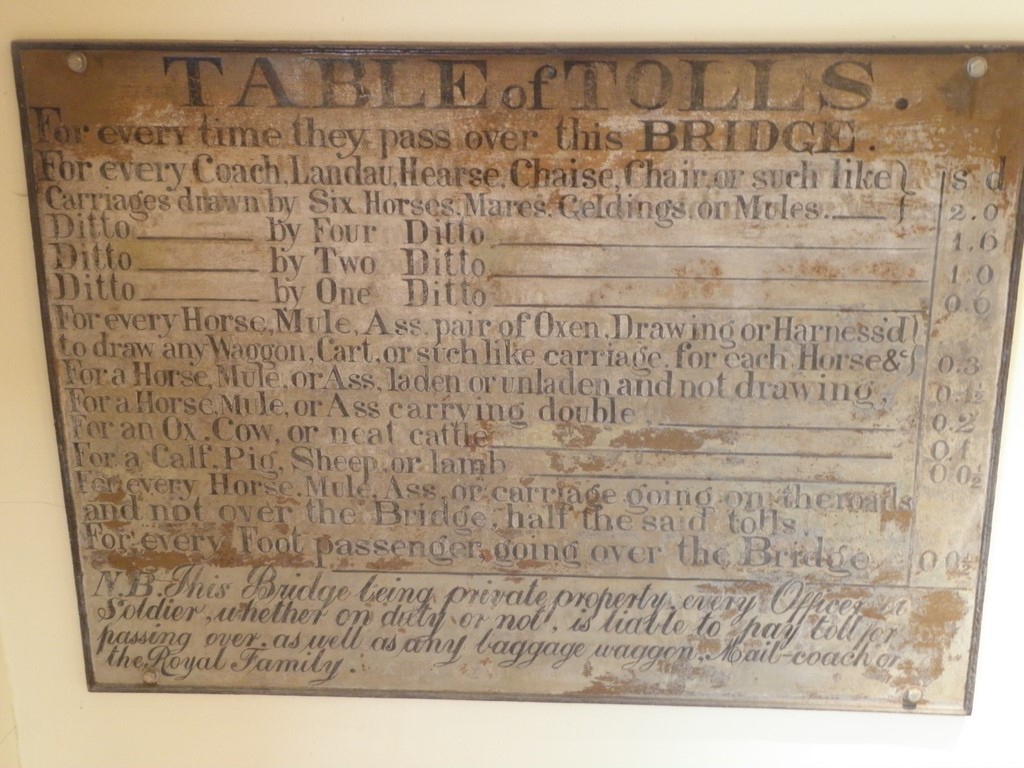 TABLE of TOLLS.
For every time they pass over this BRIDGE.
For every Coach, Landau, Hearse, Chaise, Chair, or such like } s d
Carriages drawn by Six Horses, Mares, Geldings, or Mules. } 2.0
Ditto by Four Ditto 1.6
Ditto by Two Ditto 1.0
Ditto by One Ditto 0.6
For every Horse, Mule, Ass, pair of Oxen, Drawing or Harness'd }
to draw any Waggon, Cart, or such like carriage, for each Horse &c } 0.3
For a Horse, Mule, or Ass, laden or unladen and not drawing, 0.1½
For a Horse, Mule, or Ass carrying double 0.2
For an Ox, Cow, or neat cattle 0.1
For a Calf, Pig, Sheep, or lamb 0 0½
For every Horse, Mule, Ass, or carriage going on the roads
and not over the Bridge, half the said tolls.
For every Foot passenger, going over the Bridge 0 0½
N.B. This Bridge being private property, every Officer or
Soldier, whether on duty or not, is liable to pay toll for
passing over, as well as any baggage waggon, Mail-coach or
the Royal Family.